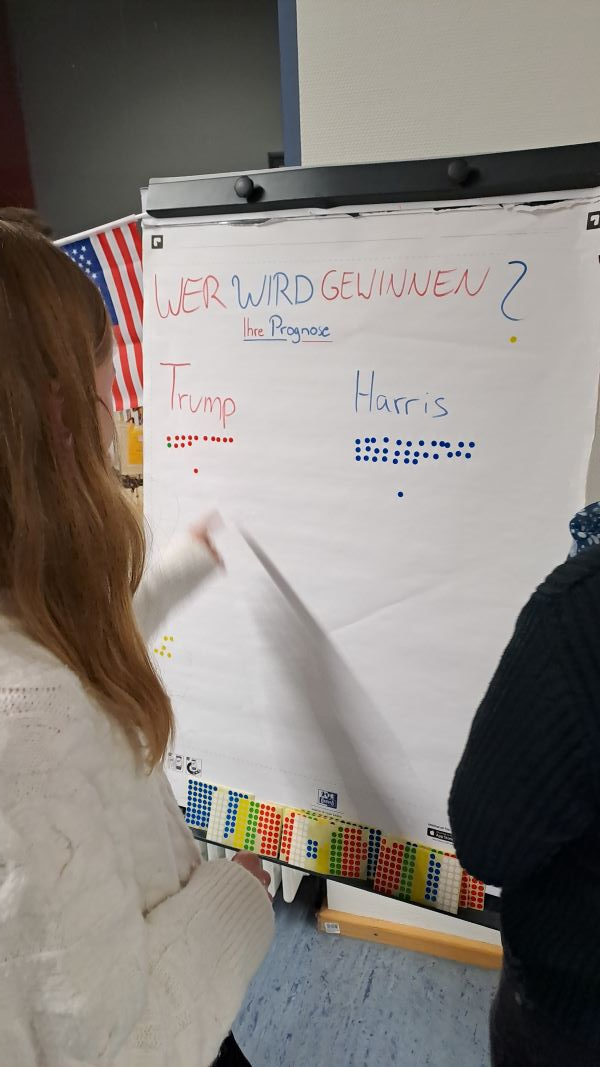 WER WIRD GEWINNEN ?
Ihre Prognose
Trump
Harris